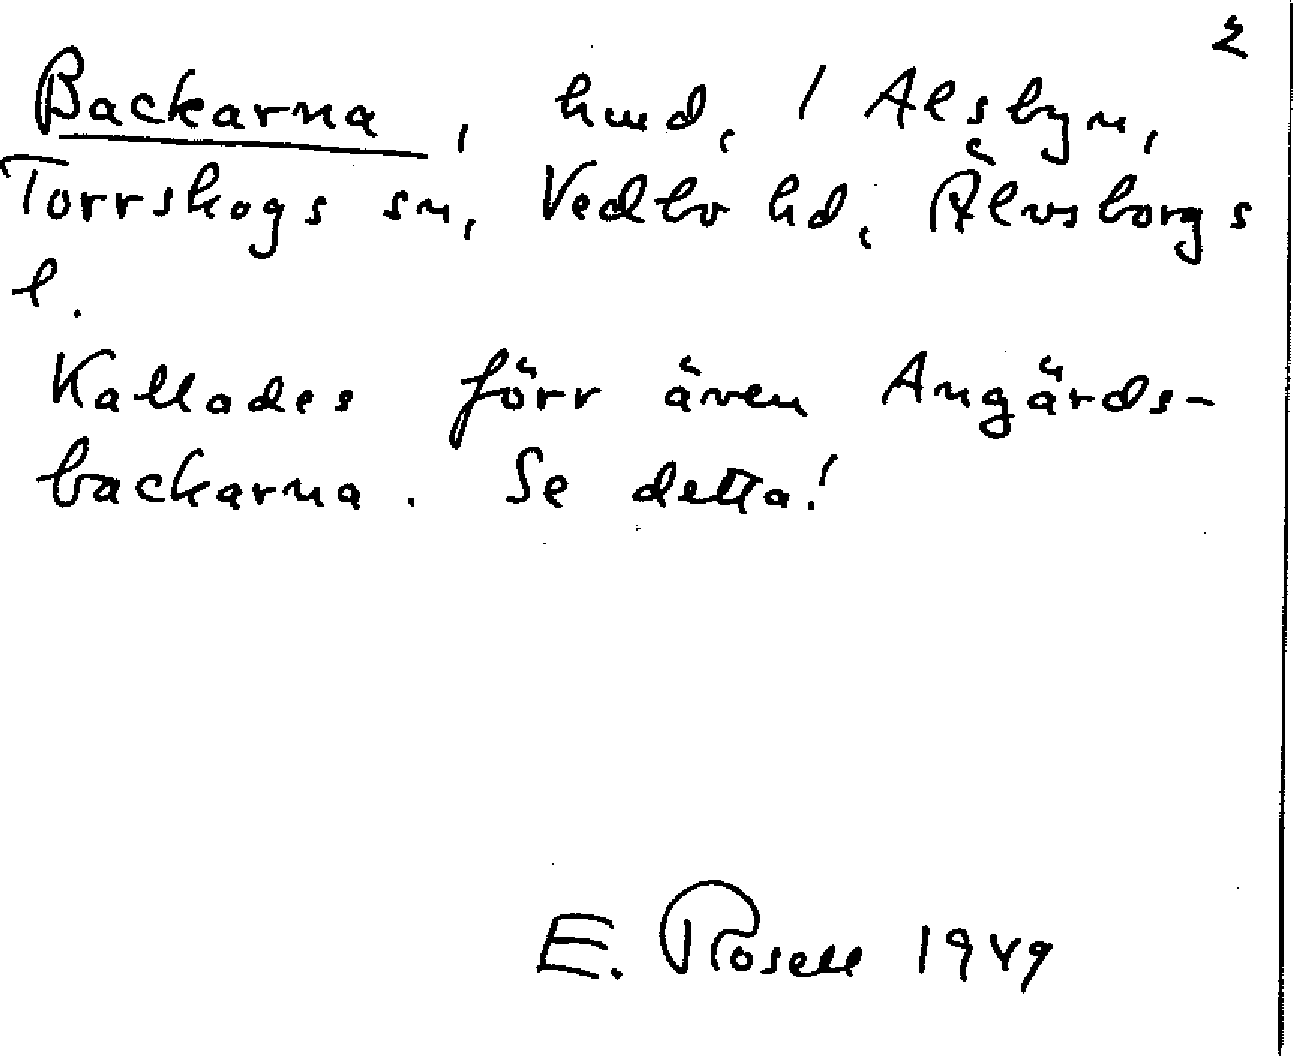 2
Backarna, hmd, 1 Alsbyn,
Torrskogs sn, Vedbo hd, Älvsborgs
l.
Kallades förr även Angärds-
backarna. Se detta!
E. Rosell 1949